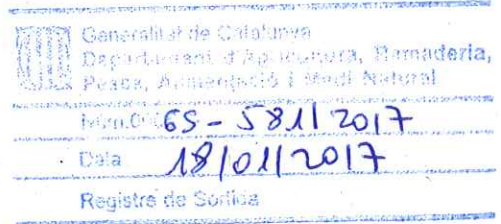 Generalitat de Catalunya
Departament d'Agricultura, Ramaderia,
Pesca, Alimentació i Medi Natural
Núm. 6S - 581/2017
Data 18/01/2017
Registre de Sortida